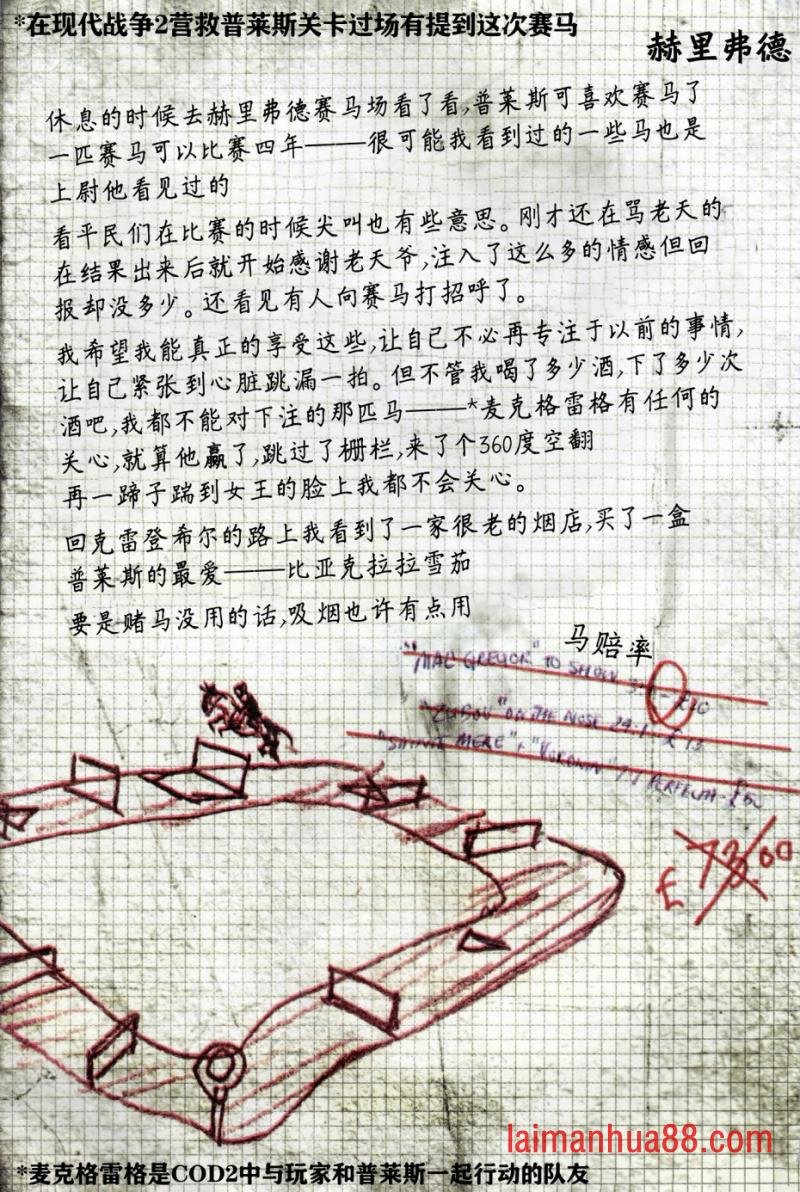 *在现代战争2营救普莱斯关卡过场有提到这次赛马
赫里弗德
休息的时候去赫里弗德赛马场看了看,普莱斯可喜欢赛马了
一匹赛马可以比赛四年———很可能我看到过的一些马也是
上尉他看见过的
看平民们在比赛的时候尖叫也有些意思。刚才还在骂老天的
在结果出来后就开始感谢老天爷,注入了这么多的情感但回
报却没多少。还看见有人向赛马打招呼了。
我希望我能真正的享受这些,让自己不必再专注于以前的事情,
让自己紧张到心脏跳漏一拍。但不管我喝了多少酒,下了多少次
酒吧,我都不能对下注的那匹马———*麦克格雷格有任何的
关心,就算他赢了,跳过了栅栏,来了个360度空翻
再一蹄子踹到女王的脸上我都不会关心。
回克雷登希尔的路上我看到了一家很老的烟店,买了一盒
普莱斯的最爱———比亚克拉拉雪茄
要是赌马没用的话,吸烟也许有点用
马赔率
"MAC GREGOR" TO SHOW
"ON THE NOSE 29-1 - £13
MERE" +
£73.00
laimanhua88.com
*麦克格雷格是COD2中与玩家和普莱斯一起行动的队友